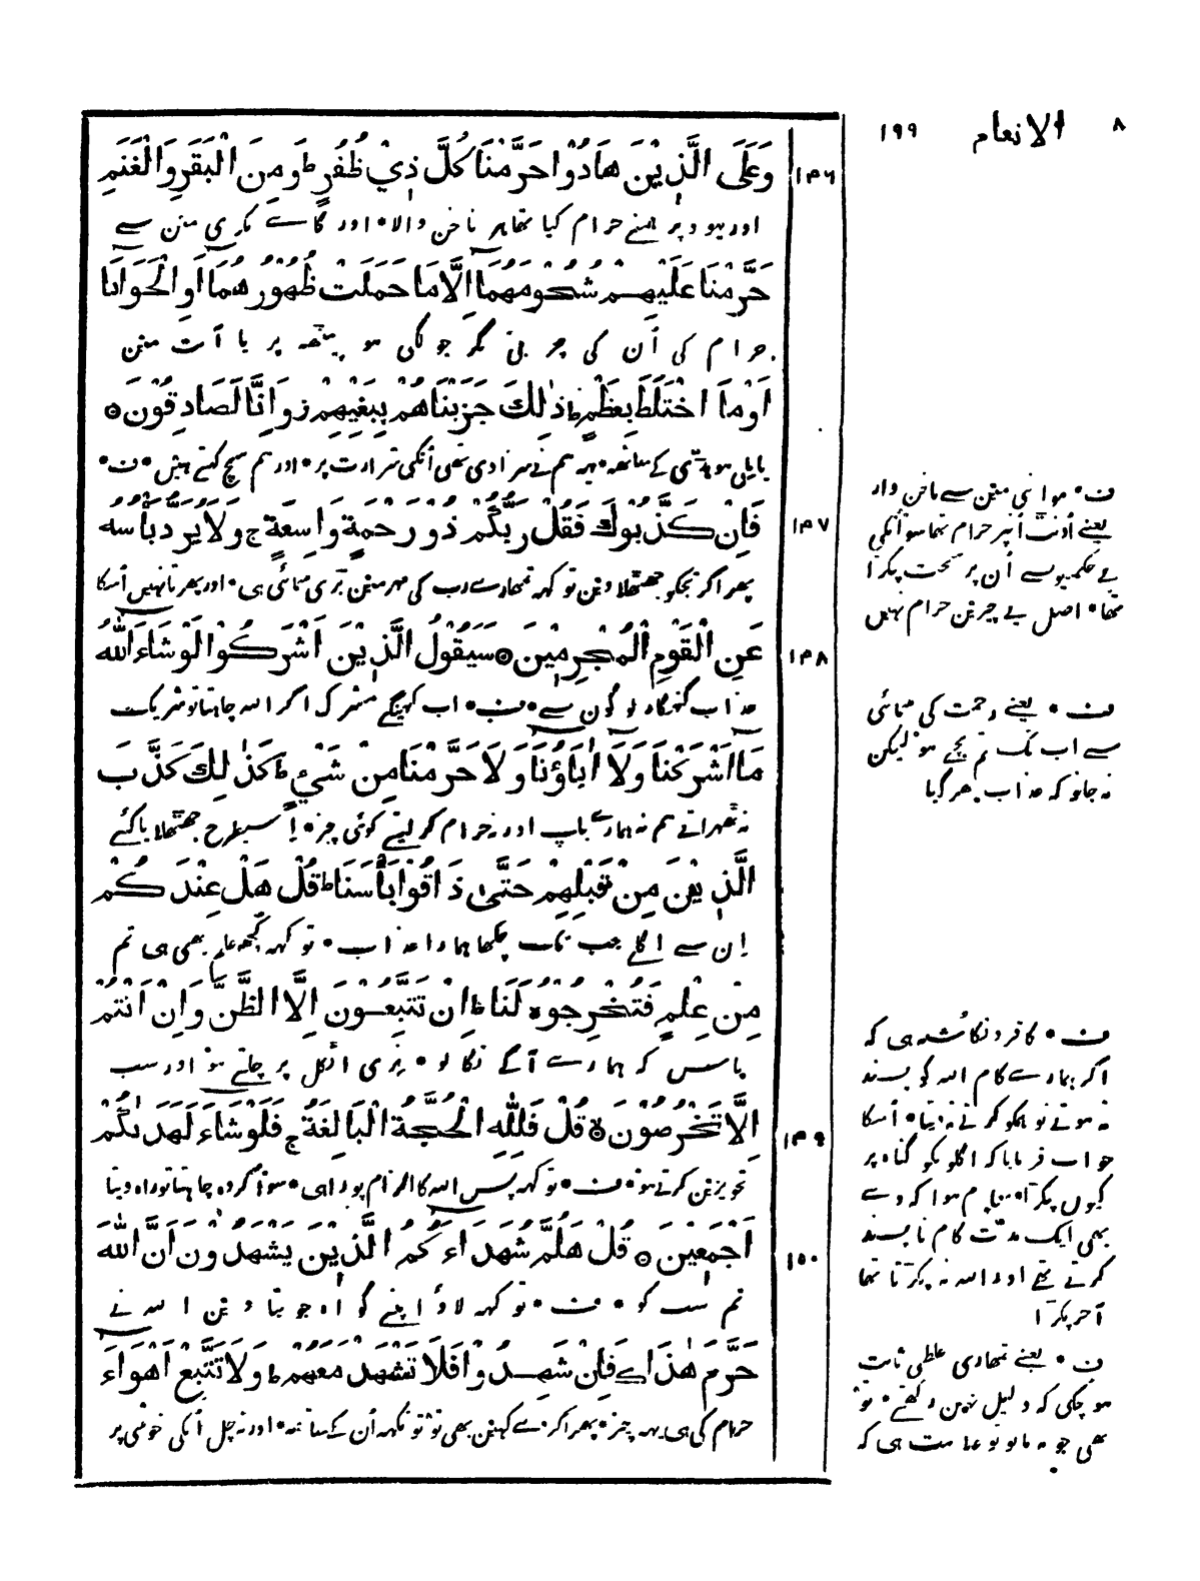 ٨ الانعام ١٩٩
وَعَلَى الَّذِيْنَ هَادُوْا حَرَّمْنَا كُلَّ ذِيْ ظُفُرٍ ط وَمِنَ الْبَقَرِ وَالْغَنَمِ ١٤٦
اور یہود پر ہمنے حرام کیا تھا ہر ناخن والا • اور گاے بکری مین سے
حَرَّمْنَا عَلَيْهِمْ شُحُوْمَهُمَا اِلَّا مَا حَمَلَتْ ظُهُوْرُهُمَا اَوِ الْحَوَايَا
حرام کی اُن کی چربی مگر جو لگی ہو پیٹھہ پر یا آنت مین
اَوْمَا اخْتَلَطَ بِعَظْمٍ ط ذٰلِكَ جَزَيْنَاهُمْ بِبَغْيِهِمْ ز وَاِنَّا لَصَادِقُوْنَ ○
یا ملی ہو ہڈی کے ساتھہ • یہہ ہم نے سزا دی تھی اُنکی شرارت پر • اور ہم سچ کہتے ہین • ف •
فَاِنْ كَذَّبُوْكَ فَقُلْ رَبُّكُمْ ذُوْ رَحْمَةٍ وَاسِعَةٍ ج وَلَا يُرَدُّ بَاْسُهُ ١٤٧
پھر اگر تجکو جھٹھلاوین تو کہہ تمھارے رب کی مہر مین بڑی سمائی ہی • اور پھرتا نہین اُسکا
عَنِ الْقَوْمِ الْمُجْرِمِيْنَ ○ سَيَقُوْلُ الَّذِيْنَ اَشْرَكُوْا لَوْ شَاءَ اللّٰهُ ١٤٨
عذاب گنہگار لوگون سے • ف • اب کہینگے مشرک اگر اللہ چاہتا تو شریک
مَا اَشْرَكْنَا وَلَا اٰبَاؤُنَا وَلَا حَرَّمْنَا مِنْ شَيْءٍ ط كَذٰلِكَ كَذَّبَ
نہ ٹھہراتے ہم نہ ہمارے باپ اور نہ حرام کر لیتے کوئی چیز • اِسیطرح جھٹھلایا کئے
الَّذِيْنَ مِنْ قَبْلِهِمْ حَتّٰى ذَاقُوْا بَاْسَنَا ط قُلْ هَلْ عِنْدَكُمْ
اِن سے اگلے جب تک چکھا ہمارا عذاب • تو کہہ کچھہ علم بھی ہی تم
مِنْ عِلْمٍ فَتُخْرِجُوْهُ لَنَا ط اِنْ تَتَّبِعُوْنَ اِلَّا الظَّنَّ وَاِنْ اَنْتُمْ
پاس کہ ہمارے آگے نکالو • نری اٹکل پر چلتے ہو اور سب
اِلَّا تَخْرُصُوْنَ ○ قُلْ فَلِلّٰهِ الْحُجَّةُ الْبَالِغَةُ ج فَلَوْ شَاءَ لَهَدٰىكُمْ ١٤٩
تجویزین کرتے ہو • ف • تو کہہ پس اللہ کا الزام پورا ہی • سو اگر وہ چاہتا تو راہ دیتا
اَجْمَعِيْنَ ○ قُلْ هَلُمَّ شُهَدَاءَكُمُ الَّذِيْنَ يَشْهَدُوْنَ اَنَّ اللّٰهَ ١٥٠
تم سب کو • ف • تو کہہ لاؤ اپنے گواہ جو بتاوین اللہ نے
حَرَّمَ هٰذَا ج فَاِنْ شَهِدُوْا فَلَا تَشْهَدْ مَعَهُمْ ط وَلَا تَتَّبِعْ اَهْوَاءَ
حرام کی ہی یہہ چیز • پھر اگر وے کہین بھی تو تو نکہہ اُن کے ساتھہ • اور نہ چل اُنکی خوشی پر
ف • مواشی مین سے ناخن دار
یعنے اُونٹ اُنپر حرام تھا سو اُنکی
بے حکمیون سے اُن پر سخت پکڑا
تھا • اصل یے چیزین حرام نہین
ف • یعنے رحمت کی سمائی
سے اب تک تم بچے ہو لیکن
نہ جانو کہ عذاب پھر گیا
ف • کافرونکا شبہہ ہی کہ
اگر ہمارے کام اللہ کو پسند
نہ ہوتے تو ہمکو کرنے نہ دیتا • اُسکا
جواب فرمایا کہ اگلونکو گناہ پر
کیون پکڑا • معلوم ہوا کہ وے
بھی ایک مدّت کام ناپسند
کرتے تھے اور اللہ نہ پکڑتا تھا
آخر پکڑا
ف • یعنے تمھاری غلطی ثابت
ہو چکی کہ دلیل نہین رکھتے • تو
بھی جو نہ مانو تو علامت ہی کہ